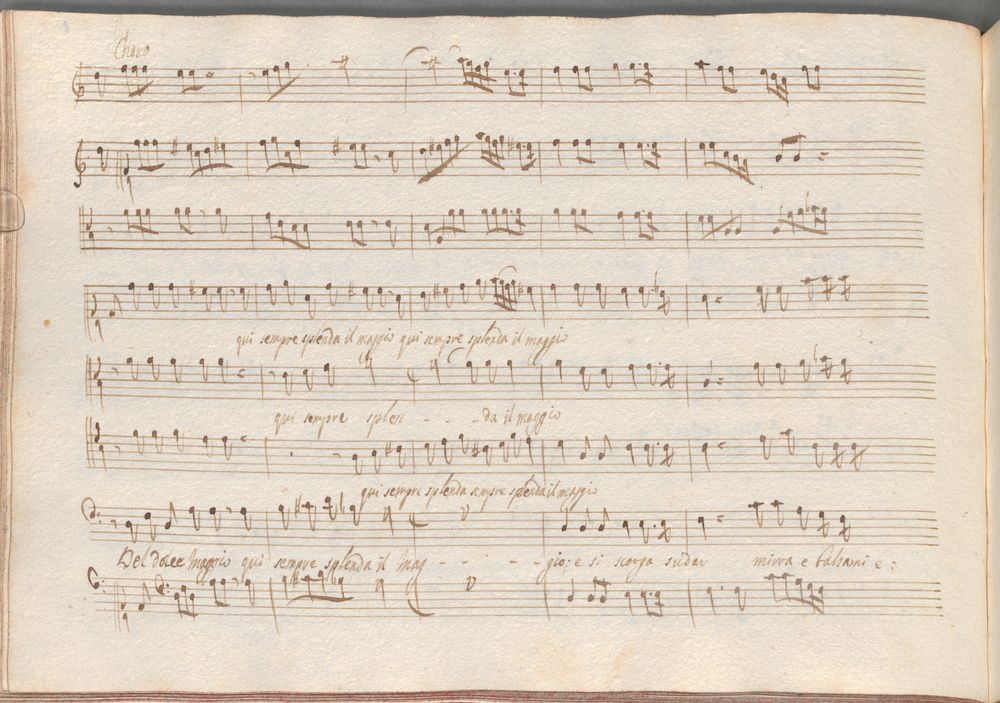 Choro
qui sempre splenda il maggio qui sempre splenda il maggio
qui sempre splen - - - da il maggio
qui sempre splenda sempre splenda il maggio
Del dolce Maggio qui sempre splenda il Mag - - - - gio: e si scorga sudar mirra e balsami e: